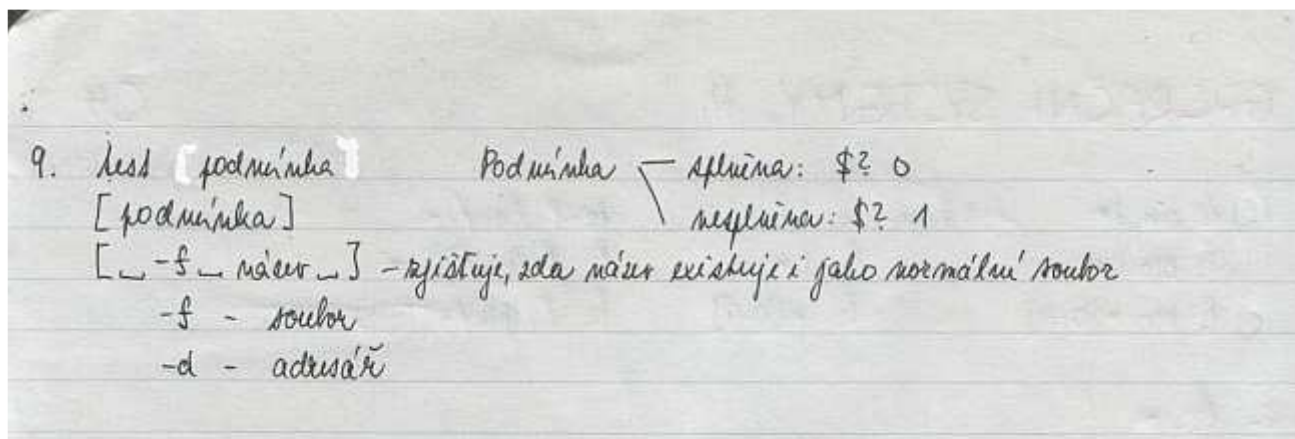 9. test [podmínka] Podmínka splněna: $? 0
[podmínka] nesplněna: $? 1
[␣ -f ␣ název ␣] - zjišťuje, zda název existuje i jako normální soubor
-f - soubor
-d - adresář